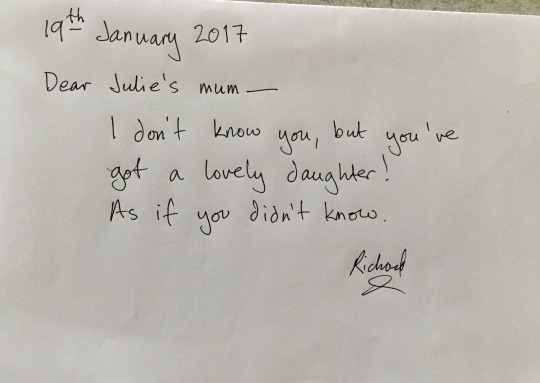 19th January 2017
Dear Julie's mum —
I don't know you, but you've
got a lovely daughter!
As if you didn't know.
Richard